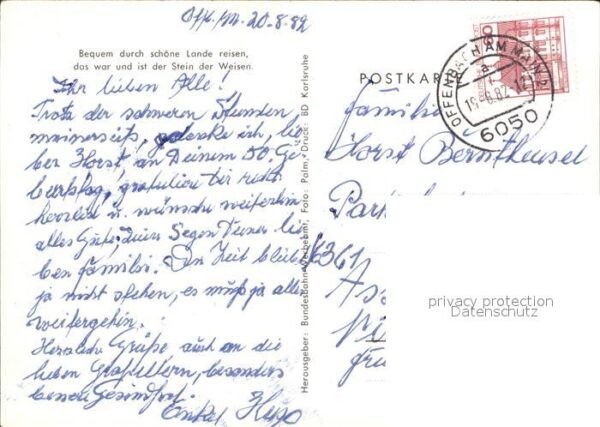 Off./M. 20.8.82
Bequem durch schöne Lande reisen,
das war und ist der Stein der Weisen.
Ihr lieben Alle!
Trotz der schweren Stunden
meinerseits, gedenke ich, lie-
ber Horst, an Deinem 50. Ge-
burtstag, gratuliere Dir recht
herzlich u. wünsche weiterhin
alles Gute, Segen Deiner lie-
ben Familie. Die Zeit bleibt
ja nicht stehen, es muß ja alles
weitergehn.
Herzliche Grüße auch an die
lieben Großeltern, besonders
Gesundheit.
Onkel Hugo
Herausgeber: Bundesbahn-Werbeamt, Foto: Palm, Druck: BD Karlsruhe
POSTKARTE
80
OFFENBACH AM MAIN 2
a
19.8.82
6050
Familie
Horst Berntheusel
Par
6361
privacy protection
Datenschutz